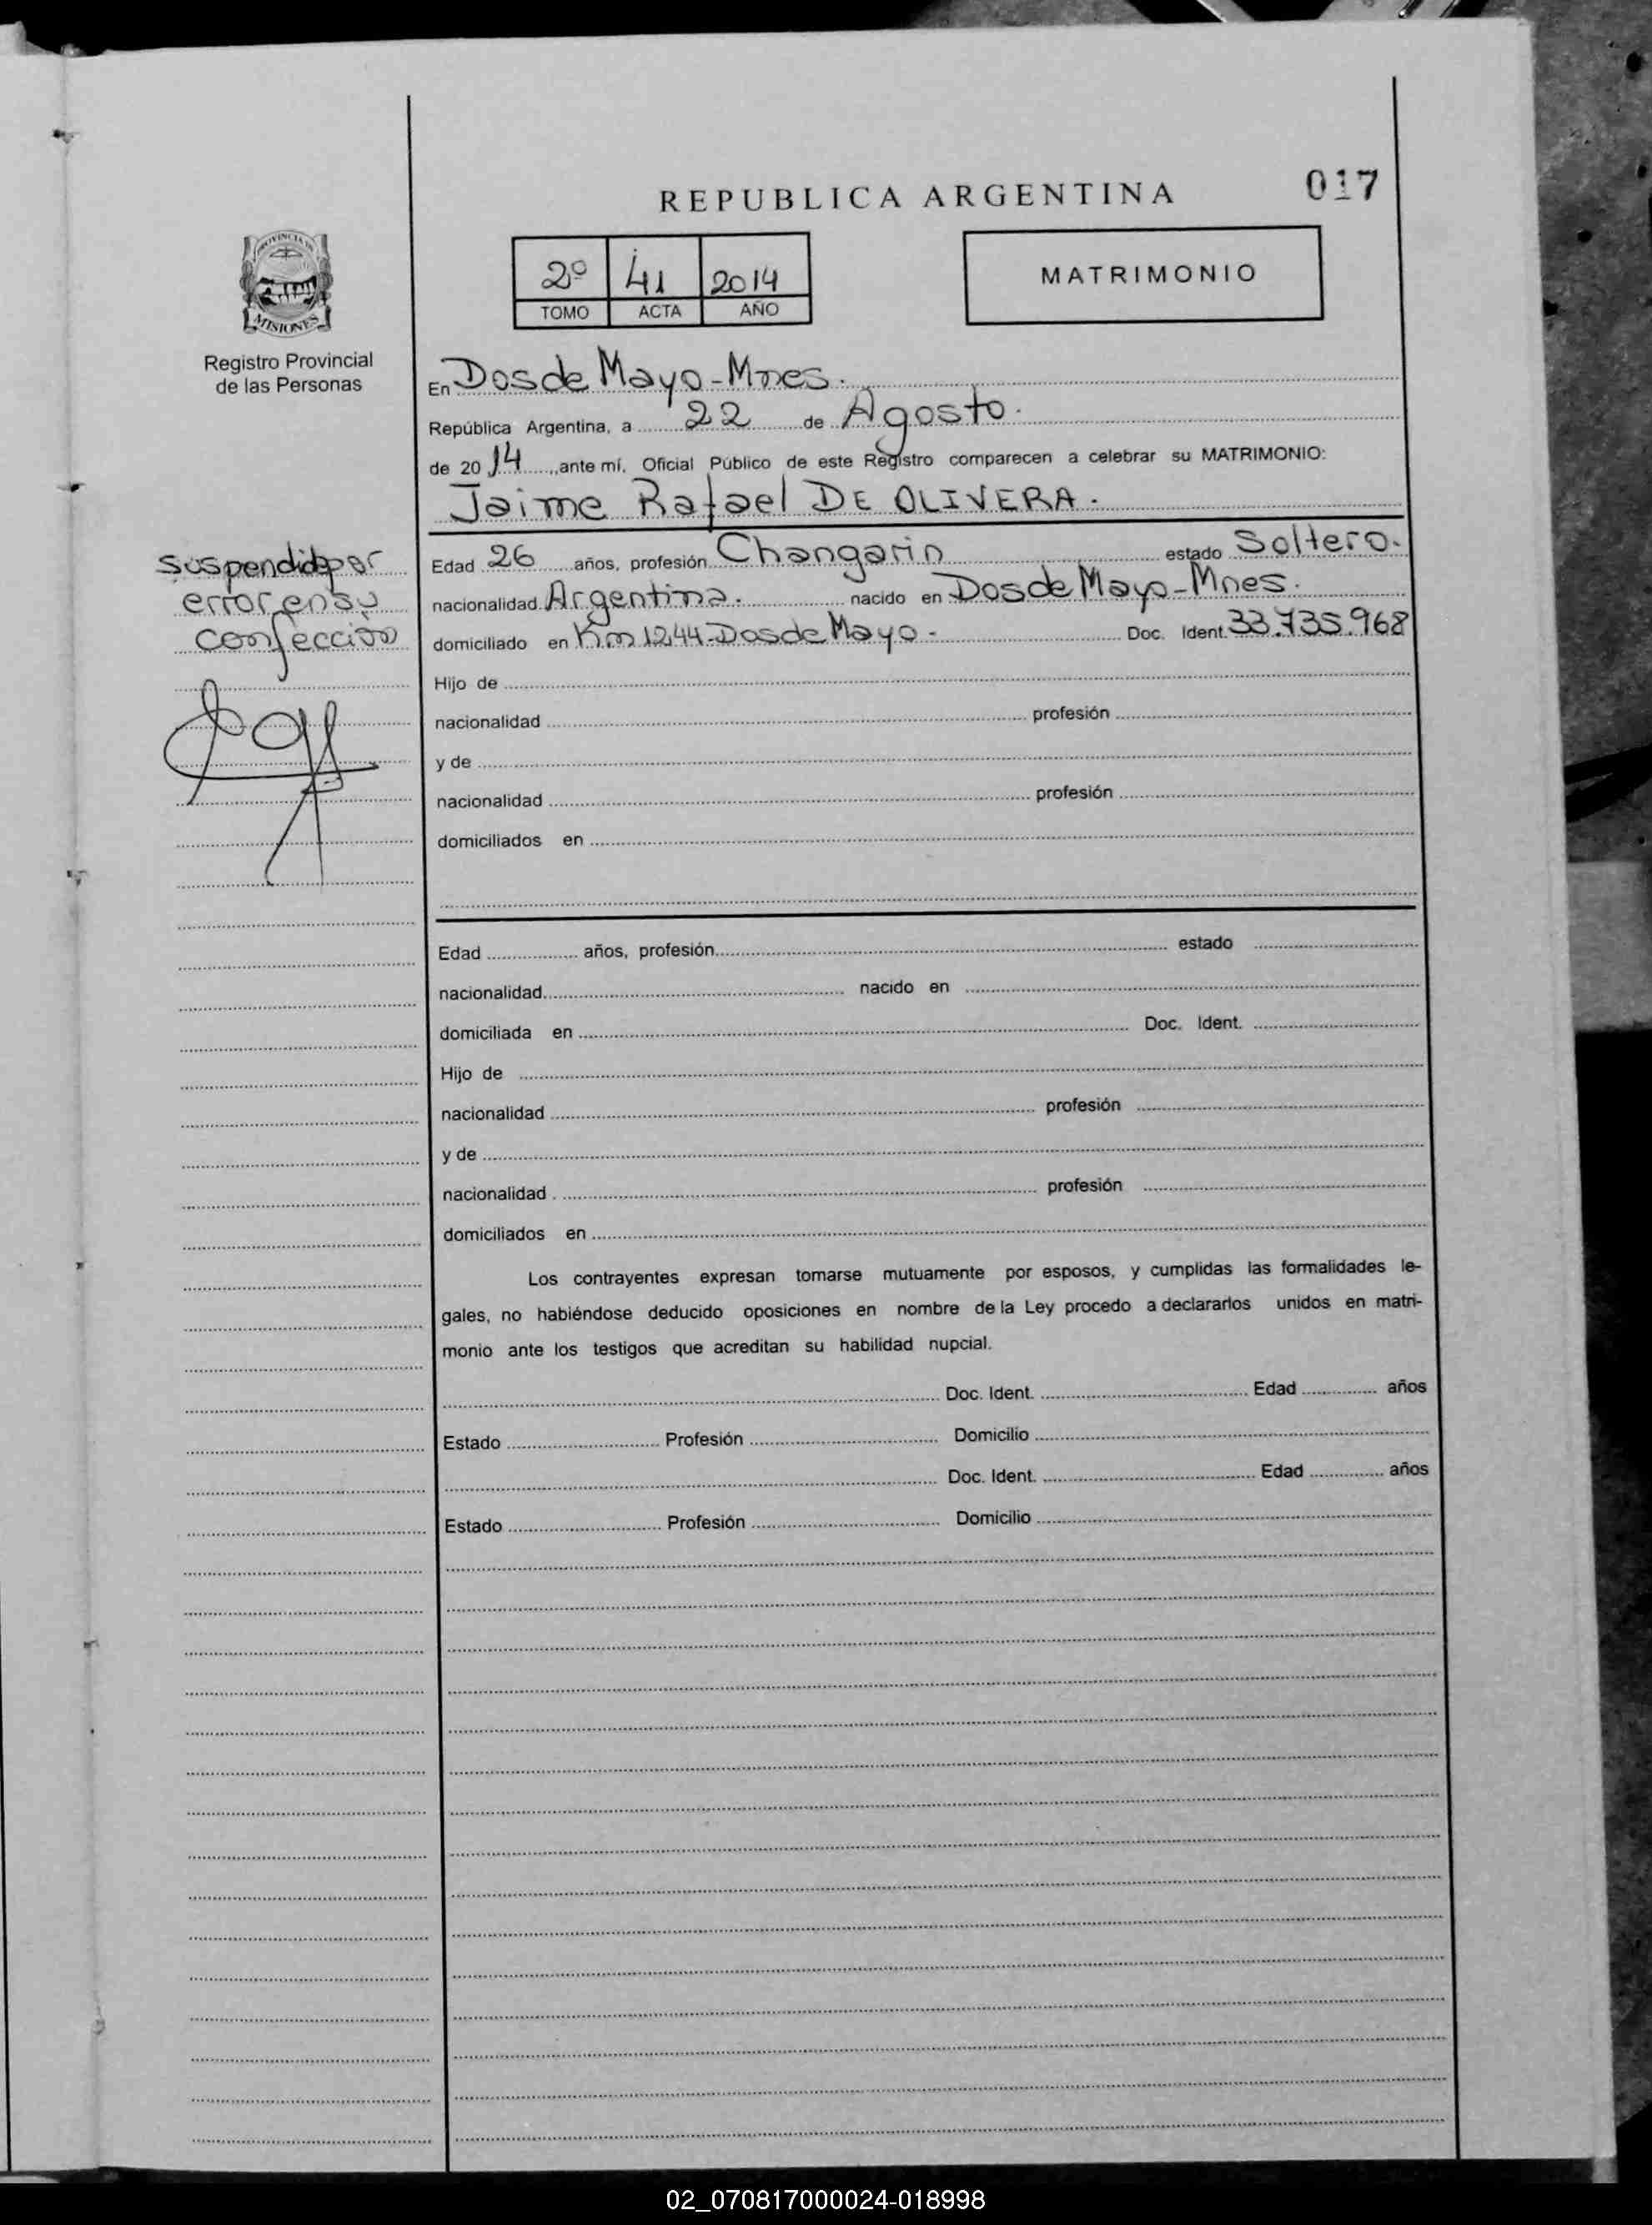 REPUBLICA ARGENTINA
017
PROVINCIA DE
MISIONES
Registro Provincial
de las Personas
2º 41 2014
TOMO ACTA AÑO
MATRIMONIO
En Dos de Mayo-Mnes.
República Argentina, a 22 de Agosto.
de 2014, ante mí, Oficial Público de este Registro comparecen a celebrar su MATRIMONIO:
Jaime Rafael DE OLIVERA.
Suspendido por
error en su
confección
Edad 26 años, profesión Changarin estado Soltero.
nacionalidad Argentina. nacido en Dos de Mayo-Mnes.
domiciliado en Km 1244-Dos de Mayo- Doc. Ident. 33.735.968
Hijo de
nacionalidad profesión
y de
nacionalidad profesión
domiciliados en
Edad años, profesión estado
nacionalidad nacido en
domiciliada en Doc. Ident.
Hijo de
nacionalidad profesión
y de
nacionalidad profesión
domiciliados en
Los contrayentes expresan tomarse mutuamente por esposos, y cumplidas las formalidades le-
gales, no habiéndose deducido oposiciones en nombre de la Ley procedo a declararlos unidos en matri-
monio ante los testigos que acreditan su habilidad nupcial.
Doc. Ident. Edad años
Estado Profesión Domicilio
Doc. Ident. Edad años
Estado Profesión Domicilio
02_070817000024-018998